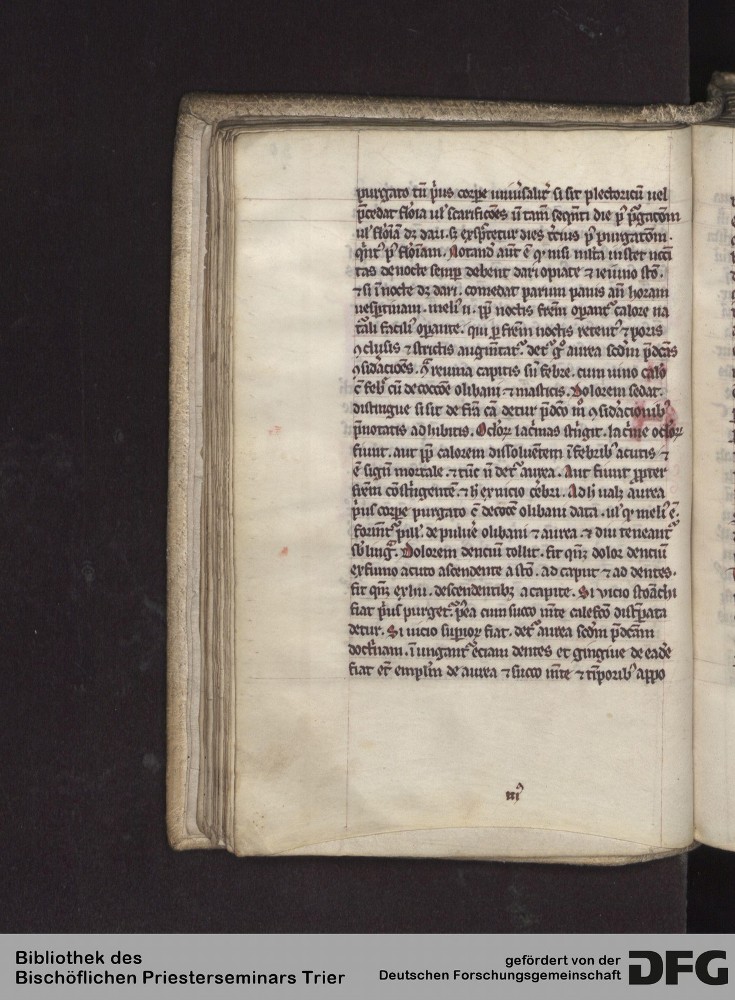 purgato tn̄ p̄us corpe uniu̾salit̾ si sit plectoricū uel
p̄cedat flōia ul̾ scarificōes ū tam̄ seqn̄ti die p̾ p̾gatōm
ul̾ flōiā dz dari. s̾ exspectetur dies t̾cius p̾ purgatōm.
p̾ flōiam. Notand̾ aūt ē qͥ nisi multa instet
tas de nocte semp debent dari opiate ⁊ ieiuno stō.
⁊ si ī nocte dz dari. comedat parum panis añ horam
uesp̄tinam. mel̾ n. pp̄ noctis frem̄ operant̾ calore na
t̾ali facili operante. qui p frem̄ noctis retent̾ ⁊ poris
ꝯclusis ⁊ strictis augm̄tat̾. det̾ gͦ aurea scdm̄ p̄dc̄as
ꝯsid̾acioēs. reuma capitis sn̄ febre. cum uino calō
c̄ feb̾ cū decoccōe olibani. ⁊ masticis. Dolorem sedat.
distingue si sit de frīa cā detur p̄dc̄o mͦ ꝯsid̾acionib̾
p̄notatis adhibitis. Oclōr̄ lac̾mas st̾ngit. lac̾me oclōr̄
fiunt. aut pp̄ calorem dissoluētem ī febrib̾ acutis ⁊
ē signū mortale. ⁊ tūc n̄ det̾ aurea. Aut fiunt pp̄ter
frem̄ cōst̾ngentē. ⁊ h̄ ex uicio cēbri. Ad h̄ ualz aurea
p̾us corpe purgato c̄ decoc̄oe olibani data. ul̾ qͥ meli̾ ē.
formēt̾ pill̾. de puluē olibani ⁊ aurea. ⁊ diu teneant̾
sb̾ ling̾. Dolorem dencium tollit. fit qn̄z dolor denciū
ex fumo acuto ascendente a stō. ad caput ⁊ ad dentes.
fit qn̄z ex hu. descendentibz a capite. Si uicio stōachi
fiat p̾us purget̾. p̾ea cum succo mn̄te calefc̄o dist̾pata
detur. Si uicio supior̾ fiat. det̾ aurea scdm̄ p̄dc̄am
doct̾nam. ī ungant̾ ēciam dentes et gingiue de eadē
fiat et̾ emplm̄ de aurea ⁊ succo mn̄te ⁊ tīporib̾ appo
iiiͥ
Bibliothek des
Bischöflichen Priesterseminars Trier
gefördert von der
Deutschen Forschungsgemeinschaft
DFG